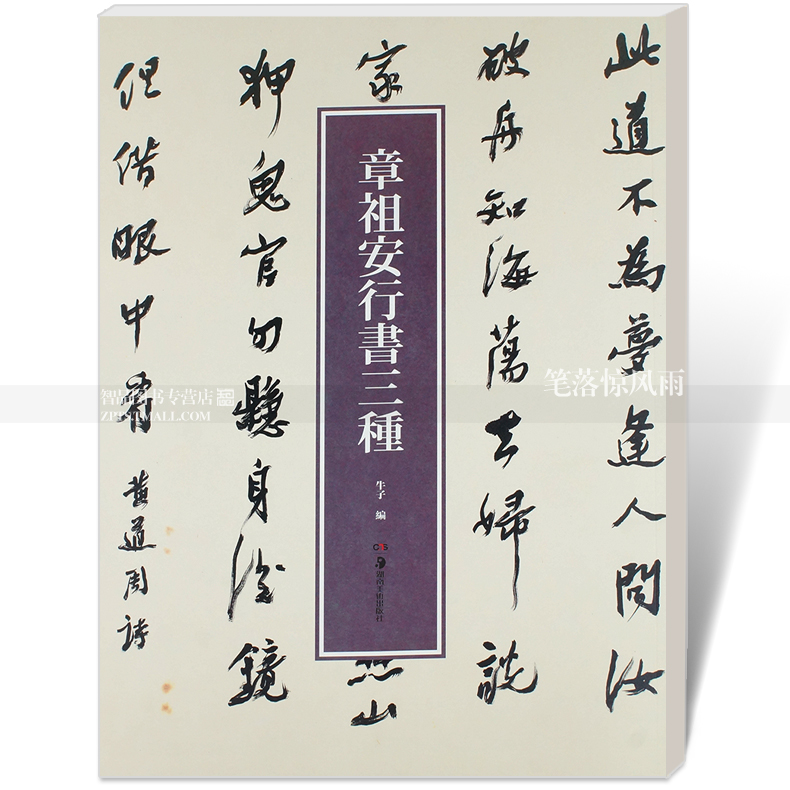 此道不為夢逢人問汝
破舟知海蕩去婦說
家
燕山
狎鬼官勿懸身
鏡
但借眼中看
黄道周詩
章祖安行書三種
牛子 编
湖南美術出版社
笔落惊风雨
智品图书专营店
ZPTS.TMALL.COM